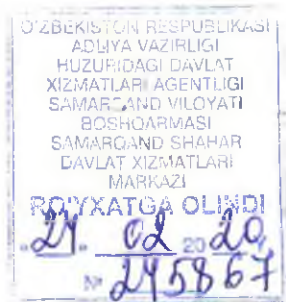 O'ZBEKISTON RESPUBLIKASI
ADLIYA VAZIRLIGI
HUZURIDAGI DAVLAT
XIZMATLARI AGENTLIGI
SAMARQAND VILOYATI
BOSHQARMASI
SAMARQAND SHAHAR
DAVLAT XIZMATLARI
MARKAZI
RO'YXATGA OLINDI
"24" 02 2020
№ 245867